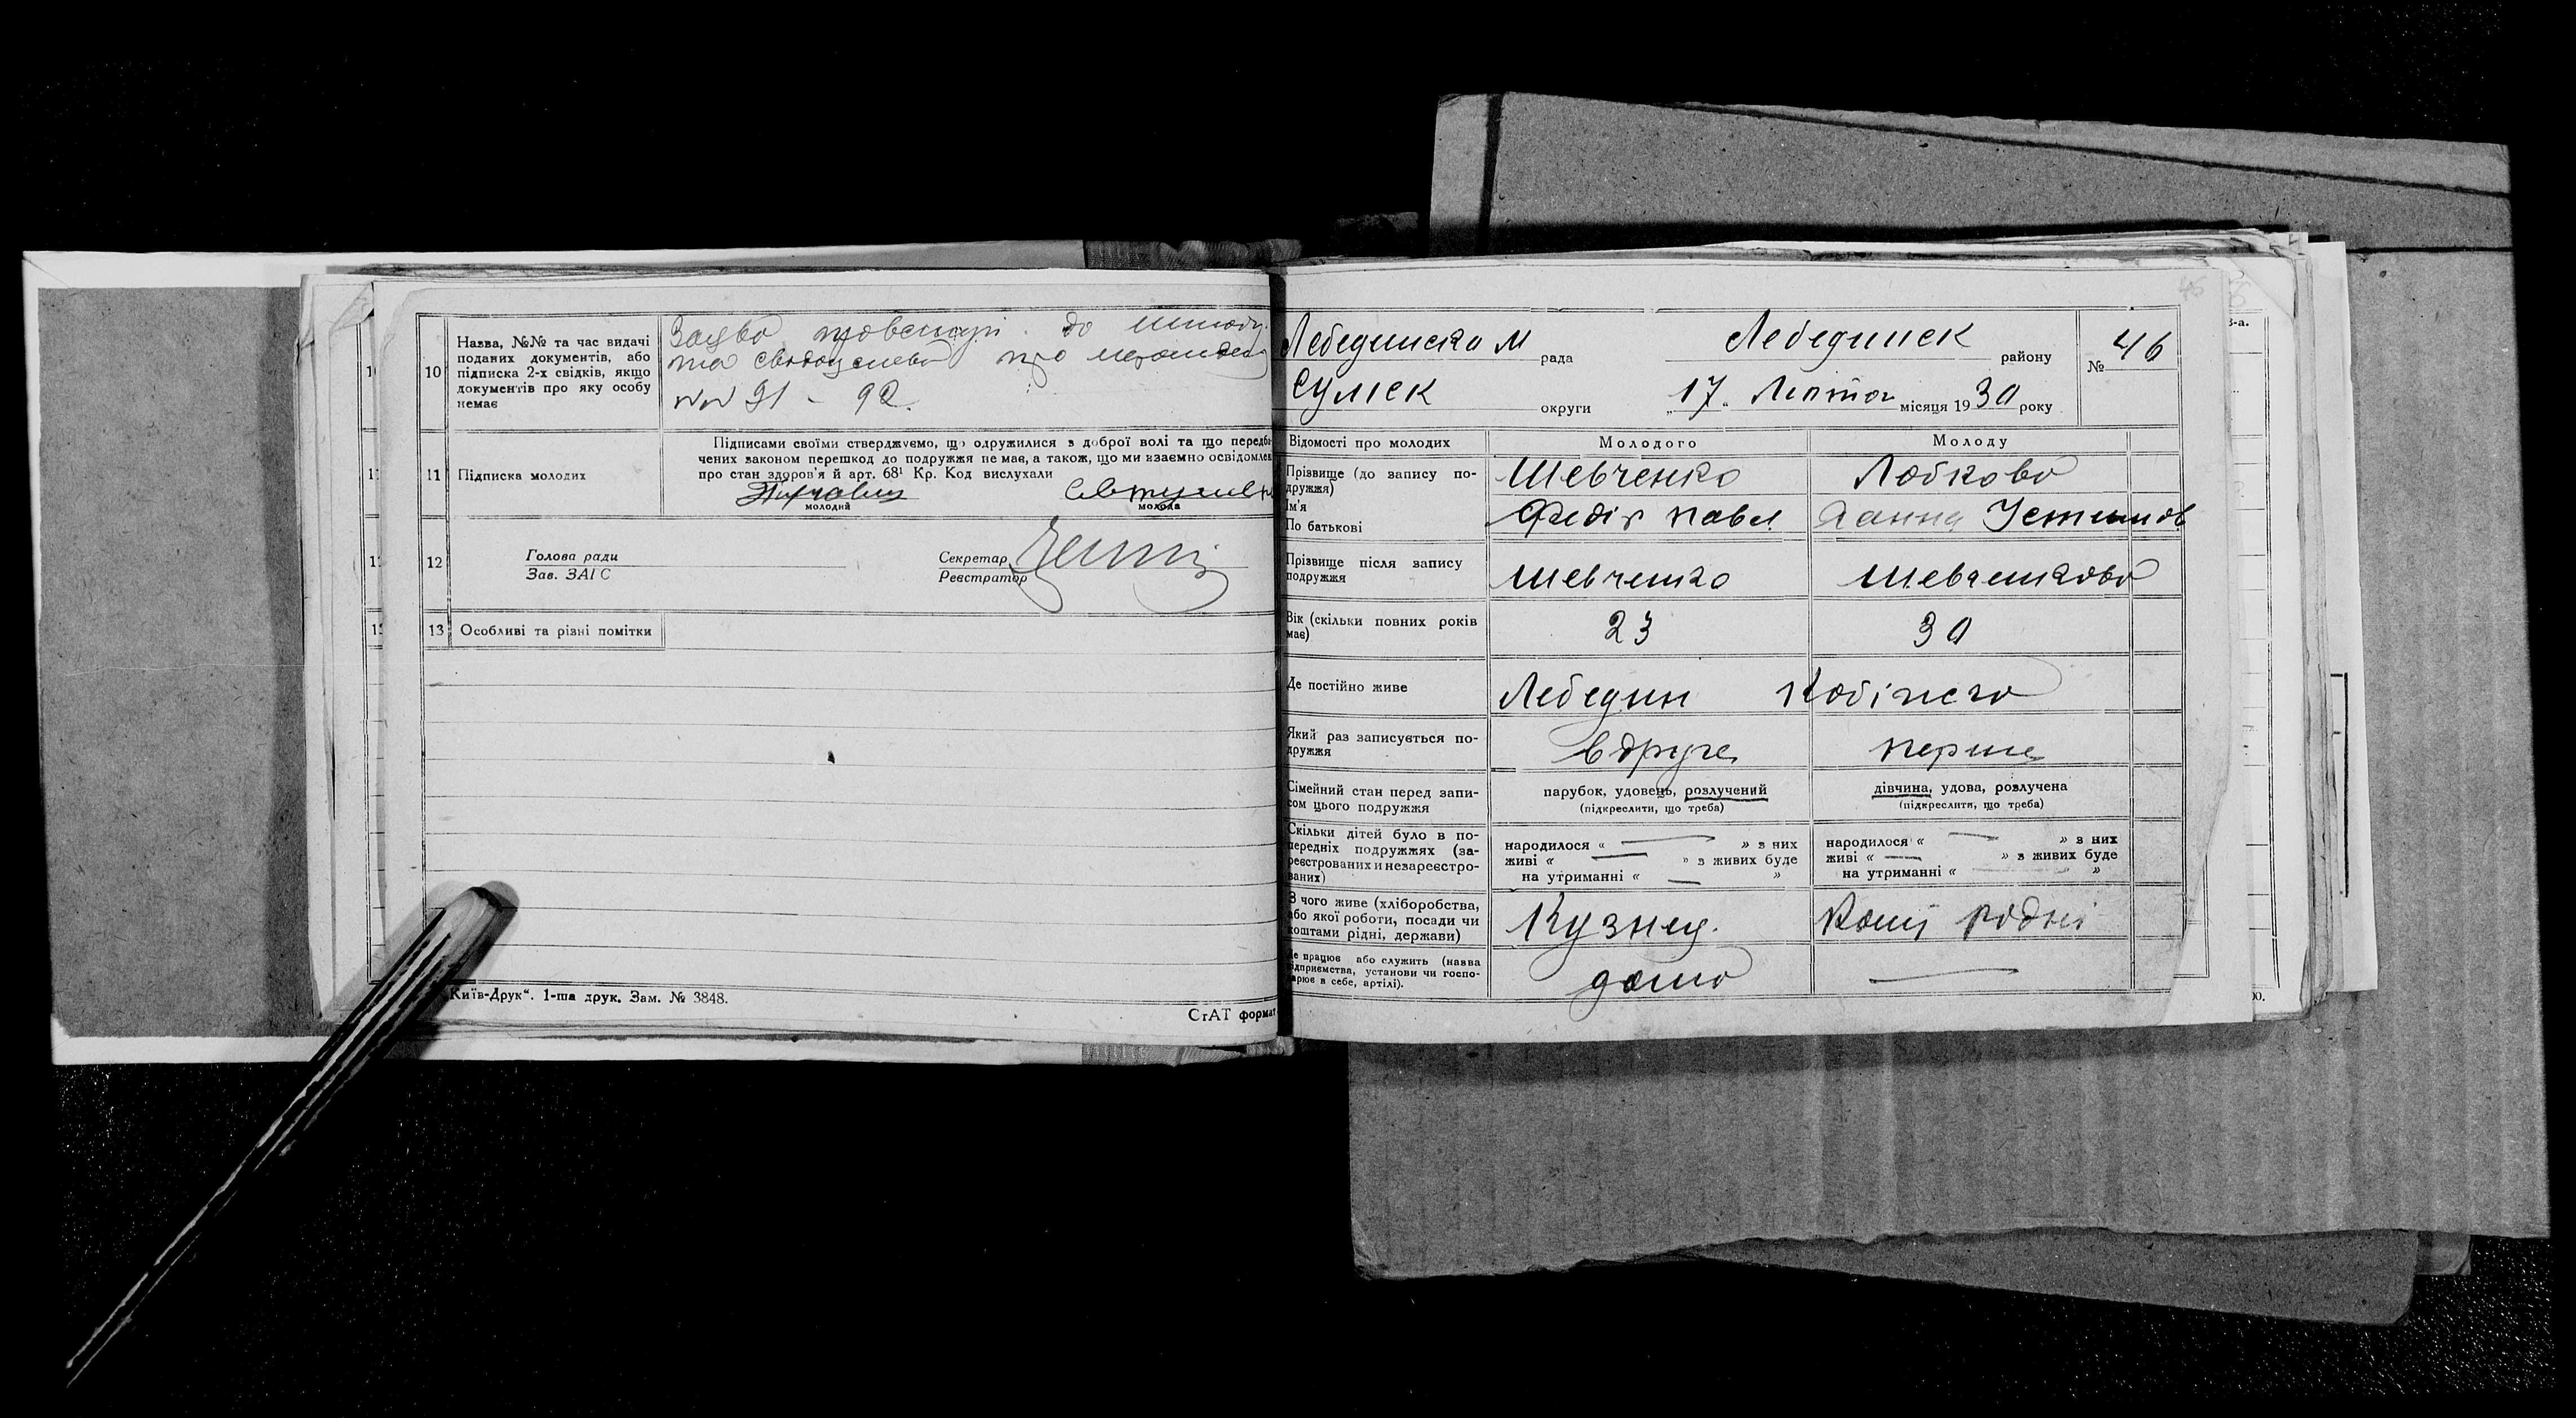 10
Назва, №№ та час видачі
поданих документів, або
підписка 2-х свідків, якщо
документів про яку особу
немає
до
та про
91 - 92.
11
Підписка молодих
Підписами своїми стверджуємо, що одружилися з доброї волі та що передба-
чених законом перешкод до подружжя немає, а також, що ми взаємно освідомлен
про стан здоров'я й арт. 68¹ Кр. Код вислухали
молодий
молода
12
Голова ради
Зав. ЗАГС
Секретар
Реєстратор
13
Особливі та різні помітки
Київ-Друк“. 1-ша друк. Зам. № 3848.
СгАТ формат
Лебединська М рада
Лебединск району
№ 46
Сумск округи
„17“ Лютого місяця 1930 року
Відомості про молодих
Молодого
Молоду
Прізвище (до запису по-
дружжя)
Шевченко
Лобкова
Ім'я
По батькові
Федір Павл
Ганна Устимов
Прізвище після запису
подружжя
Шевченко
Шевченкова
Вік (скільки повних років
має)
23
30
Де постійно живе
Лебедин
Який раз записується по-
дружжя
вдруге
перше
Сімейний стан перед запи-
сом цього подружжя
парубок, удовець, розлучений
(підкреслити, що треба)
дівчина, удова, розлучена
(підкреслити, що треба)
Скільки дітей було в по-
передніх подружжях (за-
реєстрованих и незареєстро-
ваних)
народилося « — » з них
живі « — » з живих буде
на утриманні « — »
народилося « — » з них
живі « — » з живих буде
на утриманні « — »
З чого живе (хліборобства,
або якої роботи, посади чи
коштами рідні, держави)
Кузнец.
Кошт рідні
Де працює або служить (назва
підприємства, установи чи госпо-
дарює в себе, артілі).
дома
—